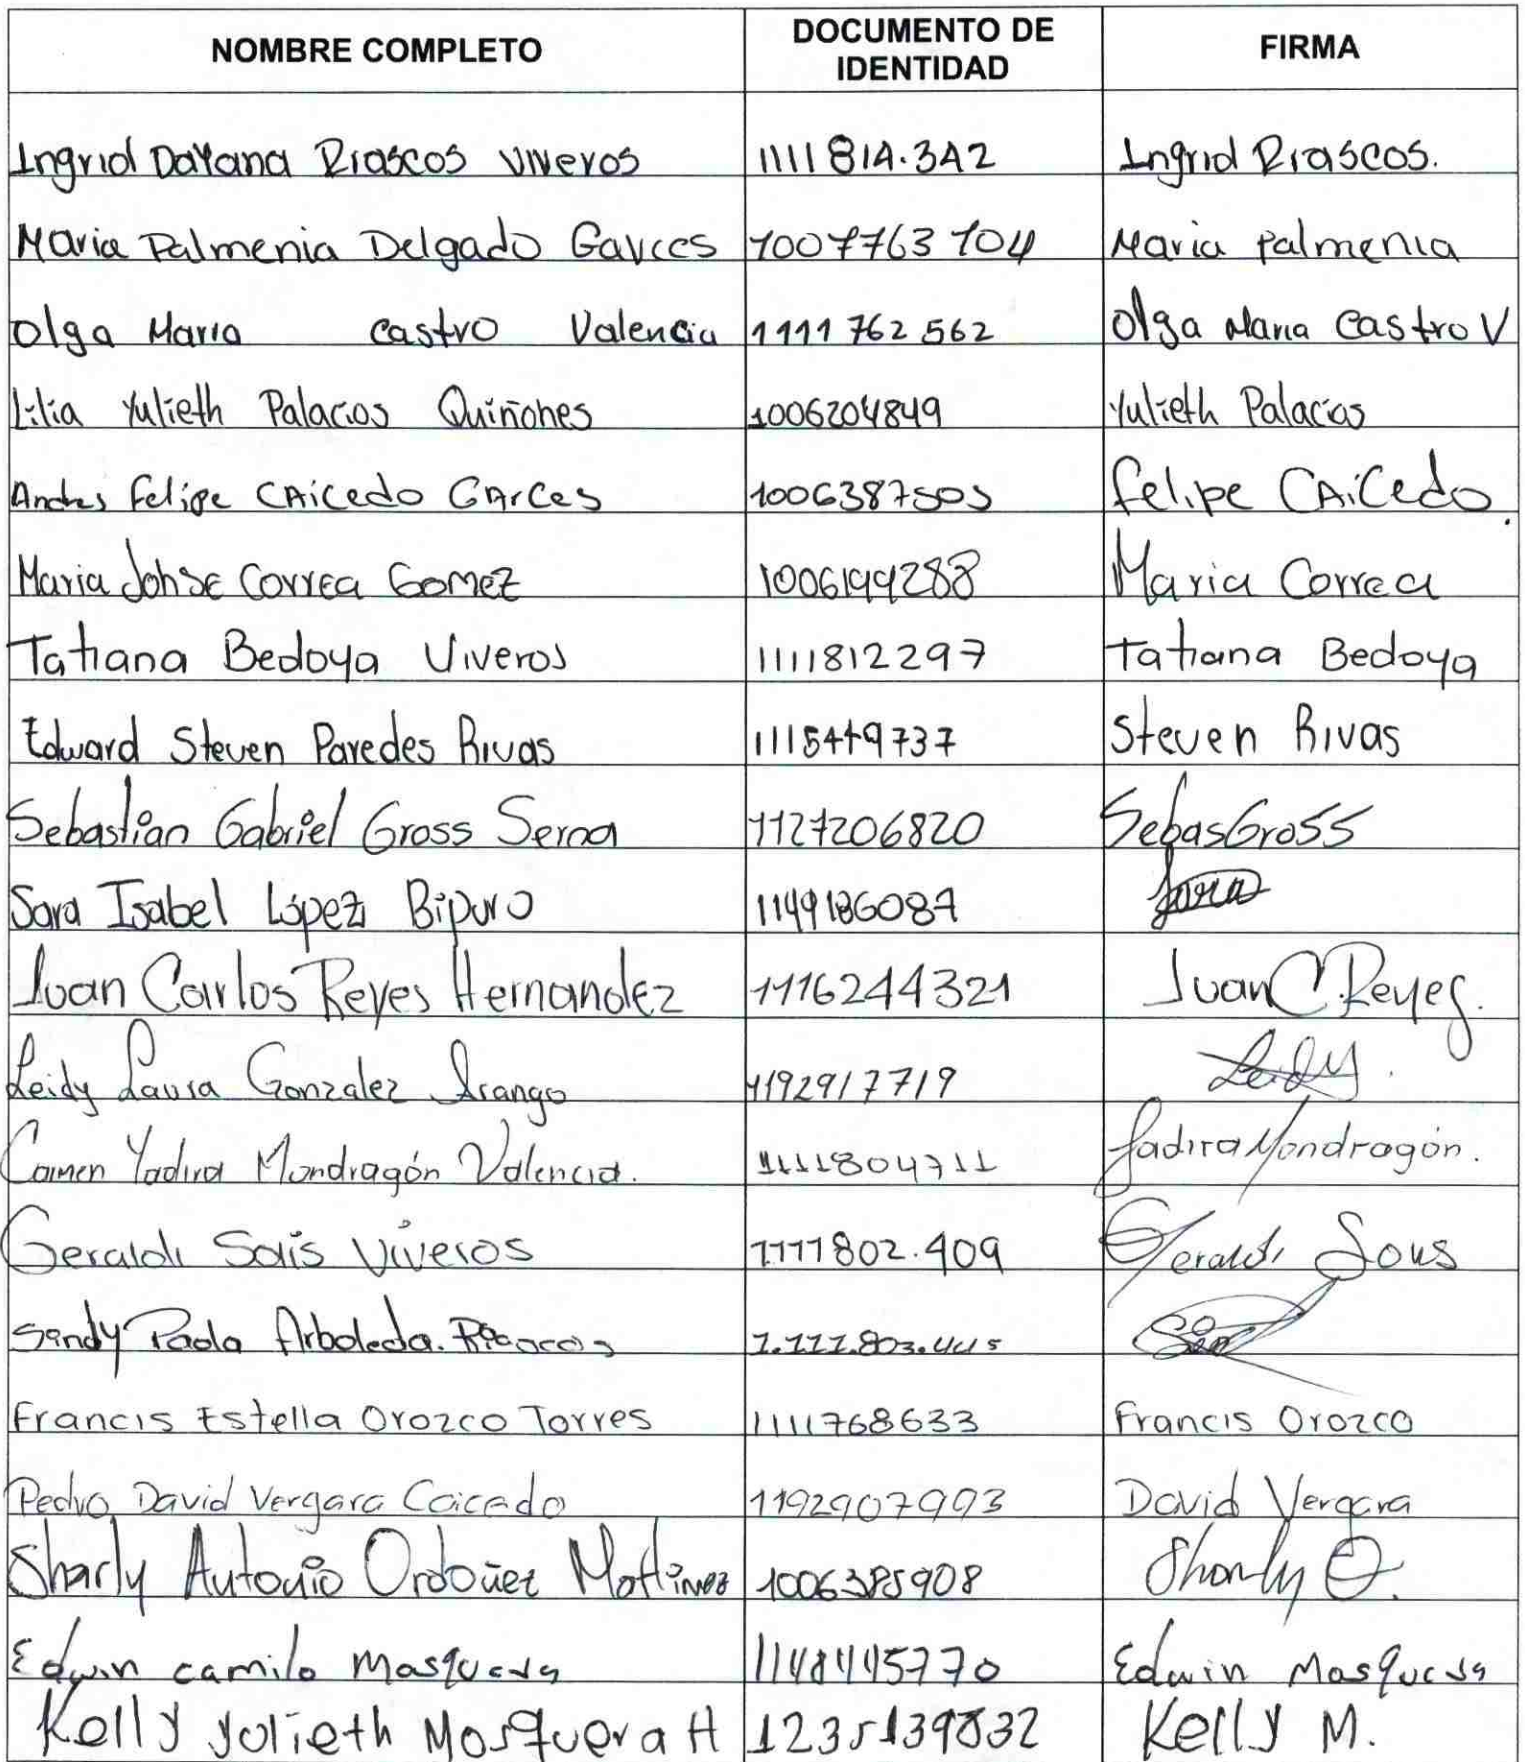 NOMBRE COMPLETO DOCUMENTO DE IDENTIDAD FIRMA
Ingrid Dayana Riascos Viveros 1111814.342 Ingrid Riascos.
Maria Palmenia Delgado Garces 1007763104 Maria Palmenia
Olga Maria Castro Valencia 1111762562 Olga Maria Castro V
Lilia Yulieth Palacios Quiñones 1006204849 Yulieth Palacios
Andres Felipe CAiCedo GArCes 1006387505 Felipe CAiCedo.
Maria Johse Correa Gomez 1006199288 Maria Correa
Tatiana Bedoya Viveros 1111812297 Tatiana Bedoya
Edward Steven Paredes Rivas 1115449737 Steven Rivas
Sebastian Gabriel Gross Serna 1127206820 SebasGross
Sara Isabel López Bipuro 1149186087 Sara
Juan Carlos Reyes Hernandez 1116244321 Juan C. Reyes.
Leidy Laura Gonzalez Arango 1192917719 Leidy.
Carmen Yadira Mondragón Valencia. 1111804711 Yadira Mondragón.
Geraldi Solis Viveros 1111802.409 Geraldi Solis
Sindy Paola Arboleda. Riascos 1.111.803.445
Francis Estella Orozco Torres 1111768633 Francis Orozco
Pedro David Vergara Caicedo 1192907993 David Vergara
Sharly Antonio Ordoñez Martinez 1006385908 Sharly O.
Edwin camilo Mosquera 1148445770 Edwin Mosquera
Kelly yulieth Mosquera H 1235139832 Kelly M.